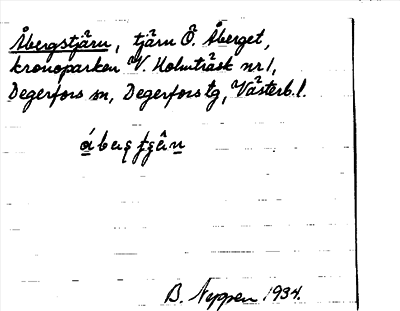 Åbergstjärn, tjärn Ö. Åberget,
kronoparken V. Holmträsk nr 1,
Degerfors sn, Degerfors tg, Västerb. l.
B. Neppen 1934.